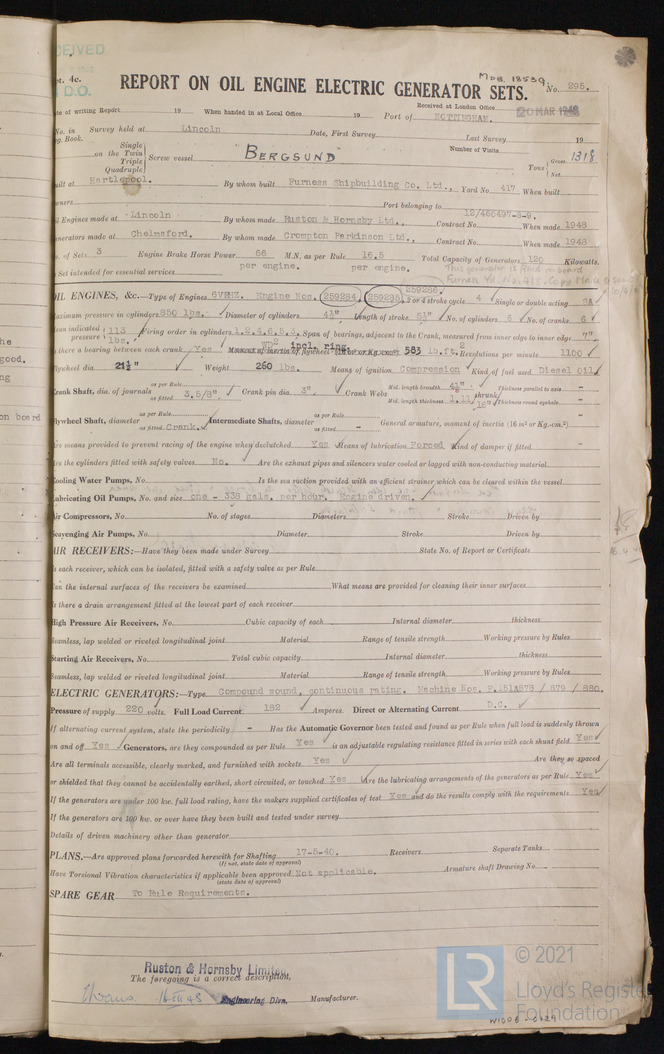 CEIVED
pt. 4c.
D.O.
REPORT ON OIL ENGINE ELECTRIC GENERATOR SETS.
MDB. 18539.
No. 295.
Received at London Office
20 MAR 1948
te of writing Report 19 When handed in at Local Office 19 Port of NOTTINGHAM.
No. in Survey held at Lincoln Date, First Survey Last Survey 19
g. Book.
Number of Visits
Single
on the Twin
Triple
Quadruple
Screw vessel "BERGSUND"
Tons Gross 1318
Net
uilt at Hartlepool. By whom built Furness Shipbuilding Co. Ltd., Yard No. 417 When built
wners Port belonging to
il Engines made at Lincoln By whom made Ruston & Hornsby Ltd., Contract No. 12/466497-8-9. When made 1948
enerators made at Chelmsford. By whom made Crompton Parkinson Ltd., Contract No. When made 1948
o. of Sets 3 Engine Brake Horse Power 66 M.N. as per Rule 16.5 Total Capacity of Generators 120 Kilowatts.
per engine. per engine.
Set intended for essential services
This generator is fitted on board
Furness Yd. No. 418.
OIL ENGINES, &c.—Type of Engines 6VEHZ. Engine Nos. 259284, 259285, 259286 2 or 4 stroke cycle 4 Single or double acting SA
aximum pressure in cylinders 850 lbs. Diameter of cylinders 4⅜" Length of stroke 5½" No. of cylinders 6 No. of cranks 6
ean indicated pressure 113 lbs. Firing order in cylinders 1.2.4.6.5.3. Span of bearings, adjacent to the Crank, measured from inner edge to inner edge 7"
s there a bearing between each crank Yes Moment of inertia of flywheel WD² incl. ring. 583 lb.ft.² Revolutions per minute 1100
lywheel dia. 21½" Weight 260 lbs. Means of ignition Compression Kind of fuel used Diesel oil
Crank Shaft, dia. of journals as per Rule as fitted 3.5/8" Crank pin dia. 3" Crank Webs Mid. length breadth 4¼" Thickness parallel to axis -
Mid. length thickness 1.11/16" shrunk Thickness round eyehole -
lywheel Shaft, diameter as per Rule as fitted Crank. Intermediate Shafts, diameter as per Rule as fitted - General armature, moment of inertia (16 in² or Kg.-cm.²)
re means provided to prevent racing of the engine when declutched Yes Means of lubrication Forced Kind of damper if fitted -
re the cylinders fitted with safety valves No. Are the exhaust pipes and silencers water cooled or lagged with non-conducting material
ooling Water Pumps, No. Is the sea suction provided with an efficient strainer which can be cleared within the vessel
ubricating Oil Pumps, No. and size one - 338 gals. per hour. Engine driven.
ir Compressors, No. No. of stages Diameters Stroke Driven by
cavenging Air Pumps, No. Diameter Stroke Driven by
IR RECEIVERS:—Have they been made under Survey State No. of Report or Certificate
s each receiver, which can be isolated, fitted with a safety valve as per Rule
an the internal surfaces of the receivers be examined What means are provided for cleaning their inner surfaces
s there a drain arrangement fitted at the lowest part of each receiver
igh Pressure Air Receivers, No. Cubic capacity of each Internal diameter thickness
eamless, lap welded or riveted longitudinal joint Material Range of tensile strength Working pressure by Rules
tarting Air Receivers, No. Total cubic capacity Internal diameter thickness
eamless, lap welded or riveted longitudinal joint Material Range of tensile strength Working pressure by Rules
ELECTRIC GENERATORS:—Type Compound wound, continuous rating. Machine Nos. P.151A878 / 879 / 880.
Pressure of supply 220 volts. Full Load Current 182 Amperes. Direct or Alternating Current D.C.
If alternating current system, state the periodicity - Has the Automatic Governor been tested and found as per Rule when full load is suddenly thrown
on and off Yes Generators, are they compounded as per Rule Yes is an adjustable regulating resistance fitted in series with each shunt field Yes
Are all terminals accessible, clearly marked, and furnished with sockets Yes Are they so spaced
or shielded that they cannot be accidentally earthed, short circuited, or touched Yes Are the lubricating arrangements of the generators as per Rule Yes
If the generators are under 100 kw. full load rating, have the makers supplied certificates of test Yes and do the results comply with the requirements Yes
If the generators are 100 kw. or over have they been built and tested under survey
Details of driven machinery other than generator
PLANS.—Are approved plans forwarded herewith for Shafting 17-5-40. Receivers Separate Tanks
(If not, state date of approval)
Have Torsional Vibration characteristics if applicable been approved Not applicable. Armature shaft Drawing No.
(state date of approval)
SPARE GEAR To Rule Requirements.
Ruston & Hornsby Limited,
The foregoing is a correct description,
16 III 48 Engineering Divn. Manufacturer.
W1006-0129
he
good.
ng
on board
LR
© 2021
Lloyd's Registe
Foundation